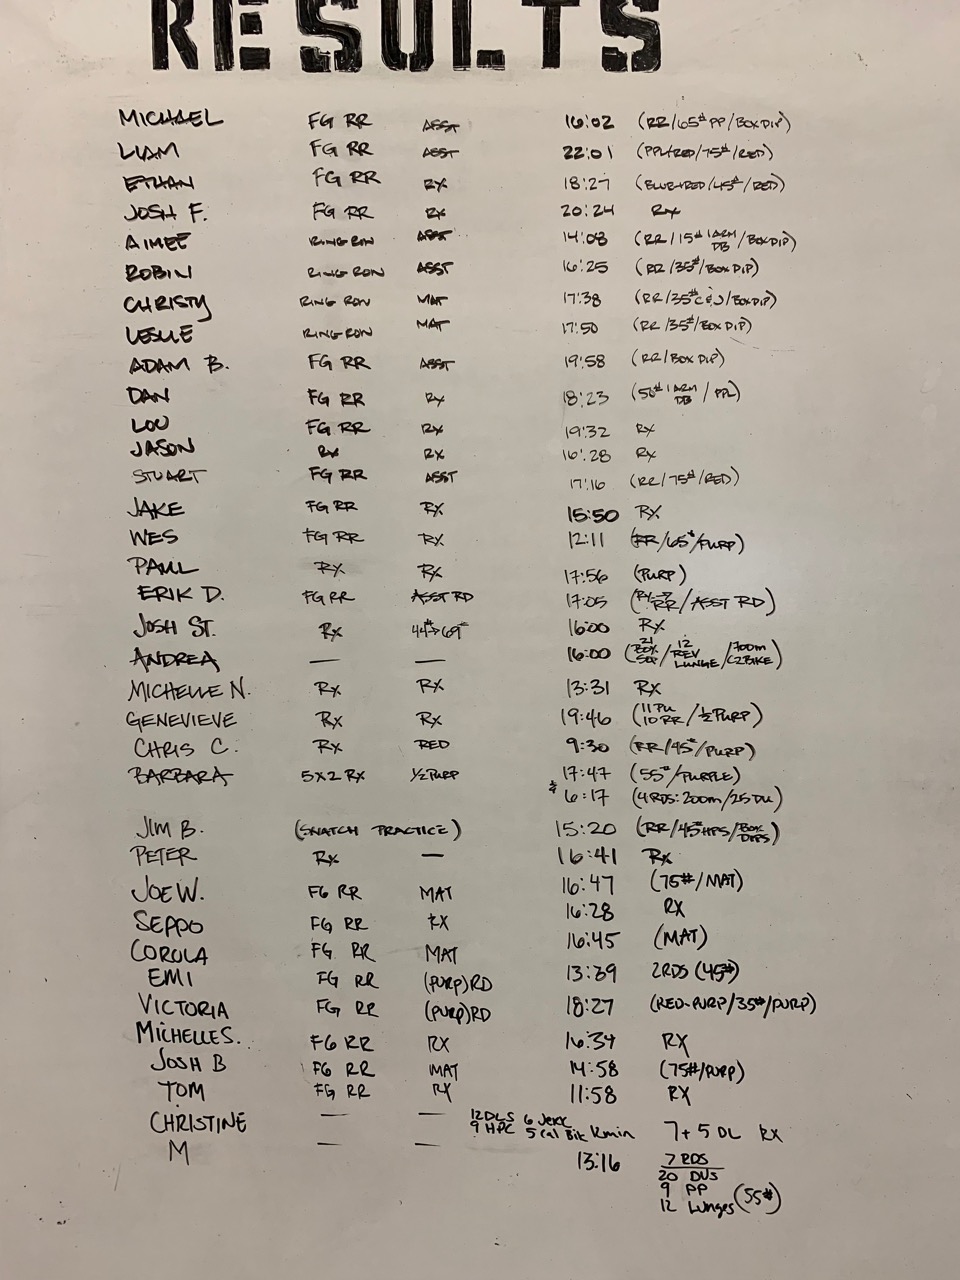 RESULTS
MICHAEL FG RR ASST 16:02 (RR/65# PP/BOX DIP)
LIAM FG RR ASST 22:01 (PPL+RED/75#/RED)
ETHAN FG RR RX 18:27 (BLUE+RED/45#/RED)
JOSH F. FG RR RX 20:24 RX
AIMEE RING ROW ASST 14:08 (RR/15# 1 ARM DB/BOX DIP)
ROBIN RING ROW ASST 16:25 (RR/35#/BOX DIP)
CHRISTY RING ROW MAT 17:38 (RR/35# C&J/BOX DIP)
LESLIE RING ROW MAT 17:50 (RR/35#/BOX DIP)
ADAM B. FG RR ASST 19:58 (RR/BOX DIP)
DAN FG RR RX 18:23 (50# 1 ARM DB / PPL)
LOU FG RR RX 19:32 RX
JASON RX RX 16:28 RX
STUART FG RR ASST 17:16 (RR/75#/RED)
JAKE FG RR RX 15:50 RX
WES FG RR RX 12:11 (RR/65#/PURP)
PAUL RX RX 17:56 (PURP)
ERIK D. FG RR ASST RD 17:05 (RX→RR/ASST RD)
JOSH ST. RX 44#→69# 16:00 RX
ANDREA — — 16:00 (21 BOX SQT/12 REV LUNGE/700m C2BIKE)
MICHELLE N. RX RX 13:31 RX
GENEVIEVE RX RX 19:46 (11 PU 10 RR/½ PURP)
CHRIS C. RX RED 9:30 (RR/45#/PURP)
BARBARA 5X2 RX ½ PURP 17:47 (55#/PURPLE)
& 6:17 (4 RDS: 200m/25 DU)
JIM B. (SNATCH PRACTICE) 15:20 (RR/45# HPS/BOX DIPS)
PETER RX — 16:41 RX
JOE W. FG RR MAT 16:47 (75#/MAT)
SEPPO FG RR RX 16:28 RX
COROLA FG RR MAT 16:45 (MAT)
EMI FG RR (PURP)RD 13:39 2RDS (45#)
VICTORIA FG RR (PURP)RD 18:27 (RED-PURP/35#/PURP)
MICHELLE S. FG RR RX 16:34 RX
JOSH B FG RR MAT 14:58 (75#/PURP)
TOM FG RR RX 11:58 RX
CHRISTINE — — 12 DLS 6 Jerk 9 HPC 5 Cal Bik 7 + 5 DL RX
M — — 13:16 7 RDS
20 DUS
9 PP
12 Lunges (55#)